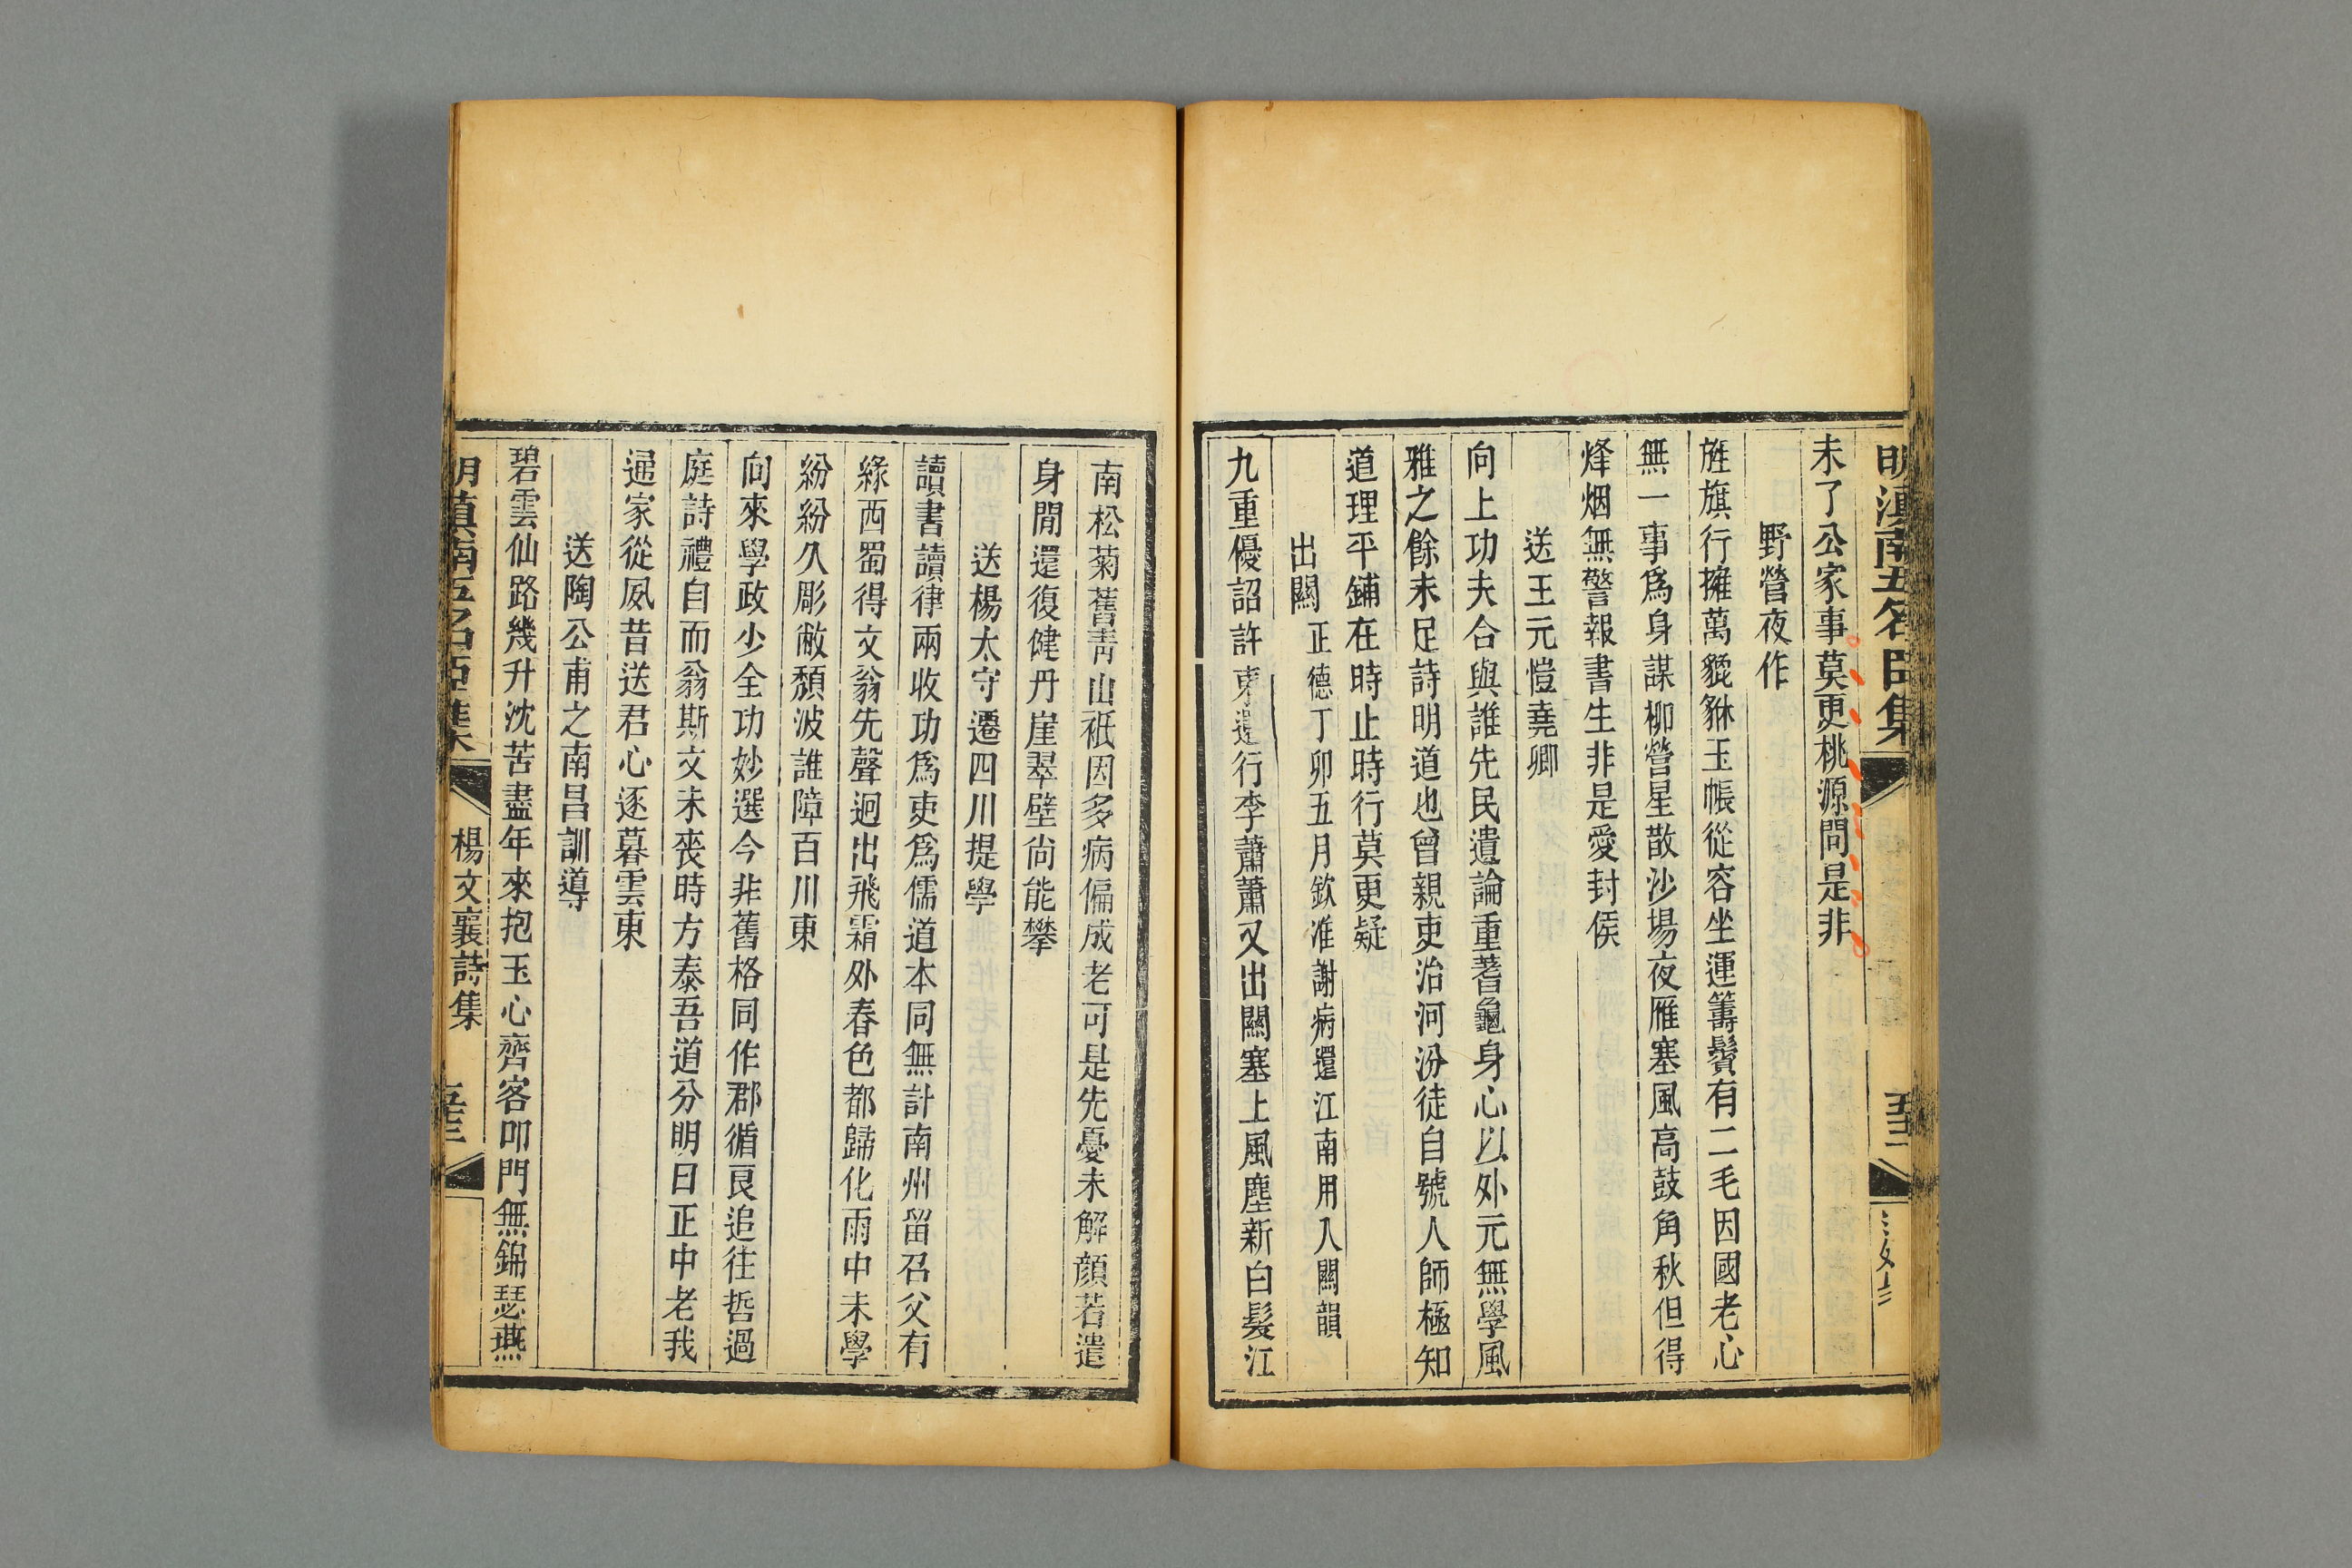 明滇南五名臣集
未了公家事莫更桃源問是非
野營夜作
旌旗行擁萬貔貅玉帳從容坐運籌鬢有二毛因國老心
無一事爲身謀柳營星散沙場夜雁塞風高鼓角秋但得
烽烟無警報書生非是愛封侯
送王元愷堯卿
向上功夫合與誰先民遺論重蓍龜身心以外元無學風
雅之餘未足詩明道也曾親吏治河汾徒自號人師極知
道理平鋪在時止時行莫更疑
出關正德丁卯五月欽准謝病還江南用入關韻
九重優詔許東還行李蕭蕭又出關塞上風塵新白髮江
南松菊舊靑山祇因多病偏成老可是先憂未解顏若遣
身閒還復健丹崖翠壁尙能攀
送楊太守遷四川提學
讀書讀律兩收功爲吏爲儒道本同無計南州留召父有
緣西蜀得文翁先聲迥出飛霜外春色都歸化雨中未學
紛紛久彫敝頹波誰障百川東
向來學政少全功妙選今非舊格同作郡循良追往哲過
庭詩禮自而翁斯文未喪時方泰吾道分明日正中老我
通家從夙昔送君心逐暮雲東
送陶公甫之南昌訓導
碧雲仙路幾升沈苦盡年來抱玉心齊客叩門無錦瑟燕
明滇南五名臣集
楊文襄詩集